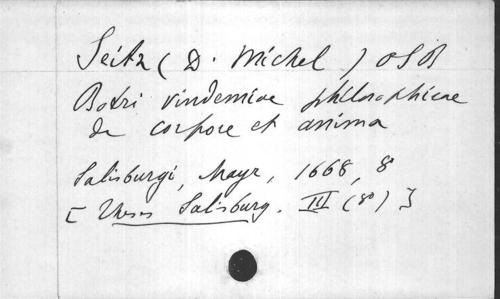 Seitz (D. Michel) OSB
Botri vindemiae philosophicae
de corpore et anima
Salisburgi, Mayr, 1668, 8
[Theses Salisburg. III (8°)]